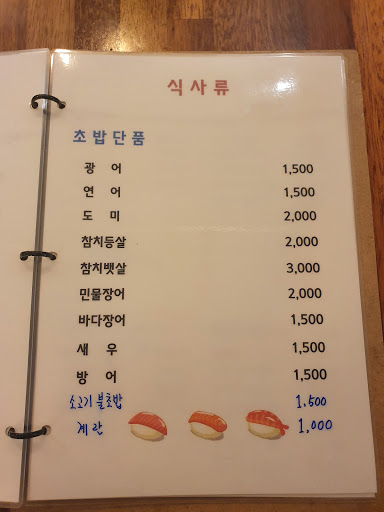 식사류
초밥단품
광 어 1,500
연 어 1,500
도 미 2,000
참치등살 2,000
참치뱃살 3,000
민물장어 2,000
바다장어 1,500
새 우 1,500
방 어 1,500
소고기불초밥 1.500
계란 1,000